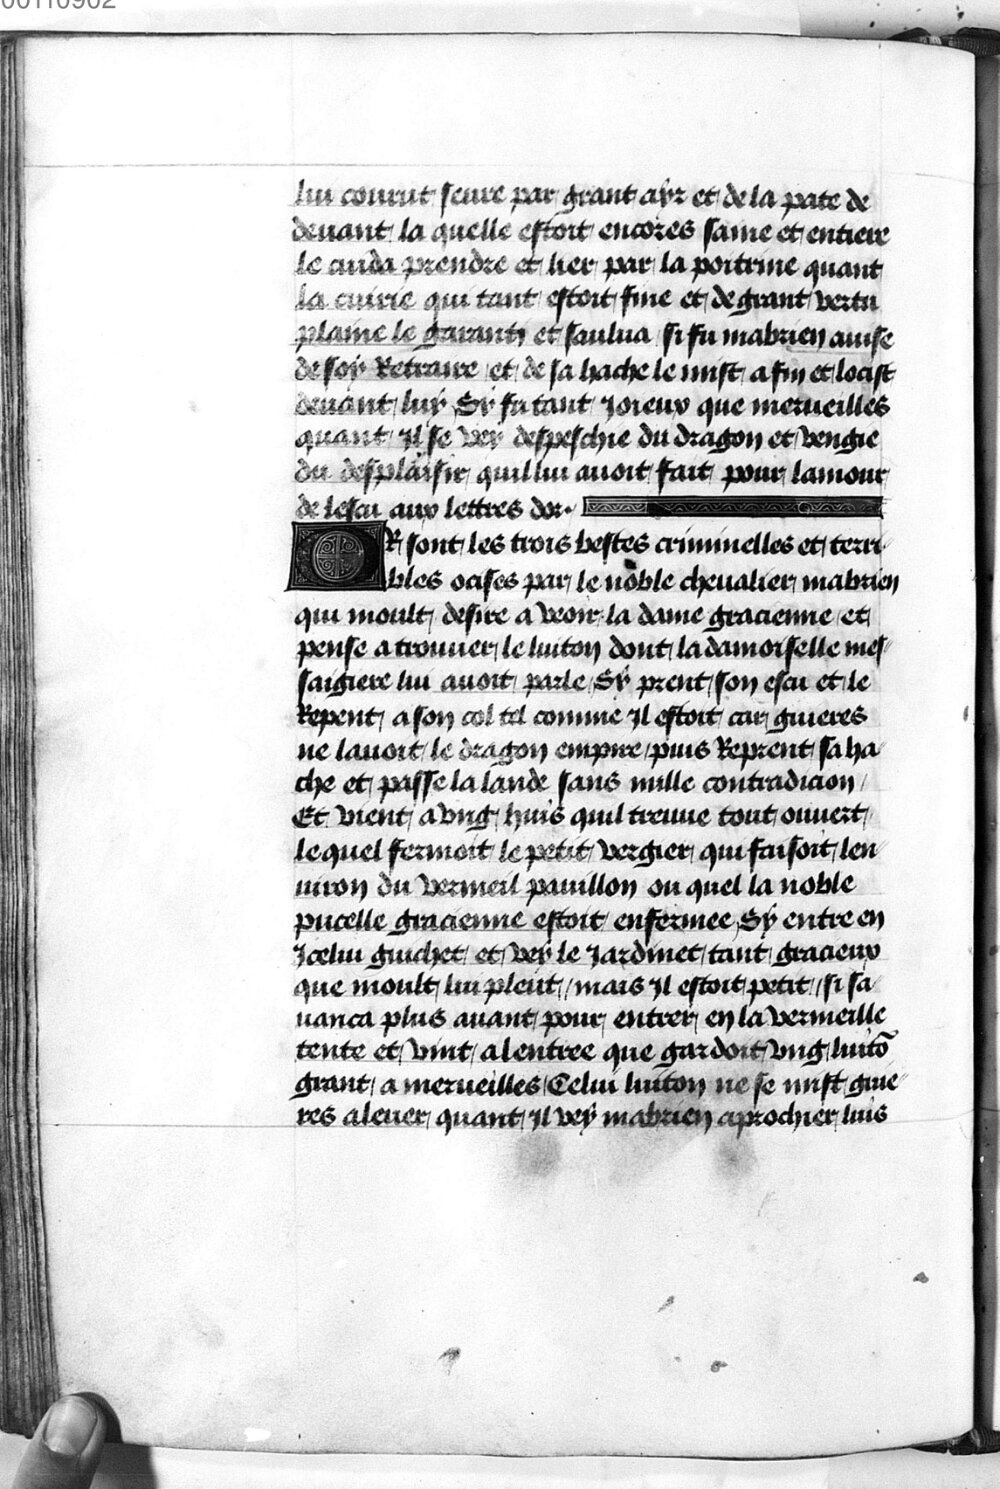 00110902
lui courut seure par grant ayr et de la pate de
deuant la quelle estoit encores saine et entiere
le cuida prendre et lier par la poitrine quant
la cuirie qui tant estoit fine et de grant vertu
plaine le garanty et saulua si fu mabrien auise
de soy Retraire et de sa hache le mist a fin et locist
deuant luy Sy fu tant Joieux que merueilles
quant Il se vey despeschie du dragon et vengie
du desplaisir quil lui auoit fait pour lamour
de lescu aux lettres dor.
OR sont les trois bestes criminelles et terri-
bles ocises par le noble cheualier mabrien
qui moult desire a veoir la dame gracienne et
pense a trouuer le luiton dont la damoiselle mes-
saigiere lui auoit parle Sy prent son escu et le
Repent a son col tel comme Il estoit car guieres
ne lauoit le dragon empire puis Reprent sa ha-
che et passe la lande sans nulle contradicion /
Et vient a vng huis quil treuue tout ouuert
le quel fermoit le petit vergier qui faisoit len-
uiron du vermeil pauillon ou quel la noble
pucelle gracienne estoit enfermee Sy entre en
Icelui guichet et vey le Jardinet tant gracieux
que moult lui pleut // mais Il estoit petit // si sa-
uanca plus auant pour entrer en la vermeille
tente et vint a lentree que gardoit vng luitõ
grant a merueilles Celui luiton ne se mist guie-
res a leuer quant Il vey mabrien aprochier luis